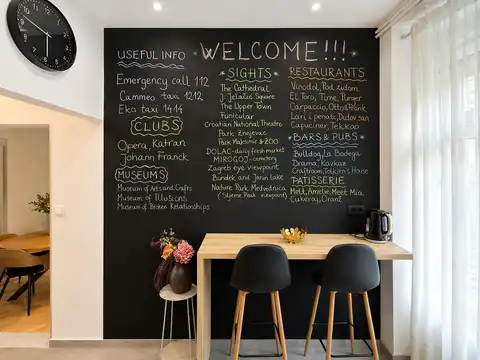 WELCOME!!!
USEFUL INFO
Emergency call 112
Cammeo taxi 1212
Eko taxi 1414
CLUBS
Opera, Katran
Johann Franck
MUSEUMS
Museum of Arts and Crafts
Museum of Illusions
Museum of Broken Relationships
SIGHTS
The Cathedral
J. Jelačić Square
The Upper Town
Funicular
Croatian National Theatre
Park Zrinjevac
Park Maksimir & ZOO
DOLAC-daily fresh market
MIROGOJ-cemetery
Zagreb eye viewpoint
Bundek and Jarun lake
Nature Park Medvednica
(Sljeme Peak viewpoint)
RESTAURANTS
Vinodol, Pod zidom
El Toro, Time, Purger
Carpaccio,
Lari i penati, Dubravkin
Capuciner, Tekkao
BARS & PUBS
Bulldog, La Bodega
Drama, Kavkaz
Craftroom, Tolkien's House
PATISSERIE
Melt, Amelie, Meet Mia
Cukeraj, Oranž